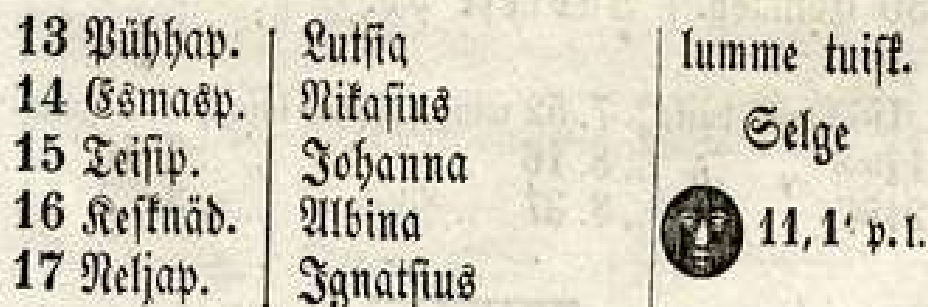 13 Pühhap. Lutsia lumme tuisk.
14 Esmasp. Nikasius Selge
15 Teisip. Johanna
16 Kesknäd. Albina 11, 1' p. l.
17 Neljap. Ignatsius